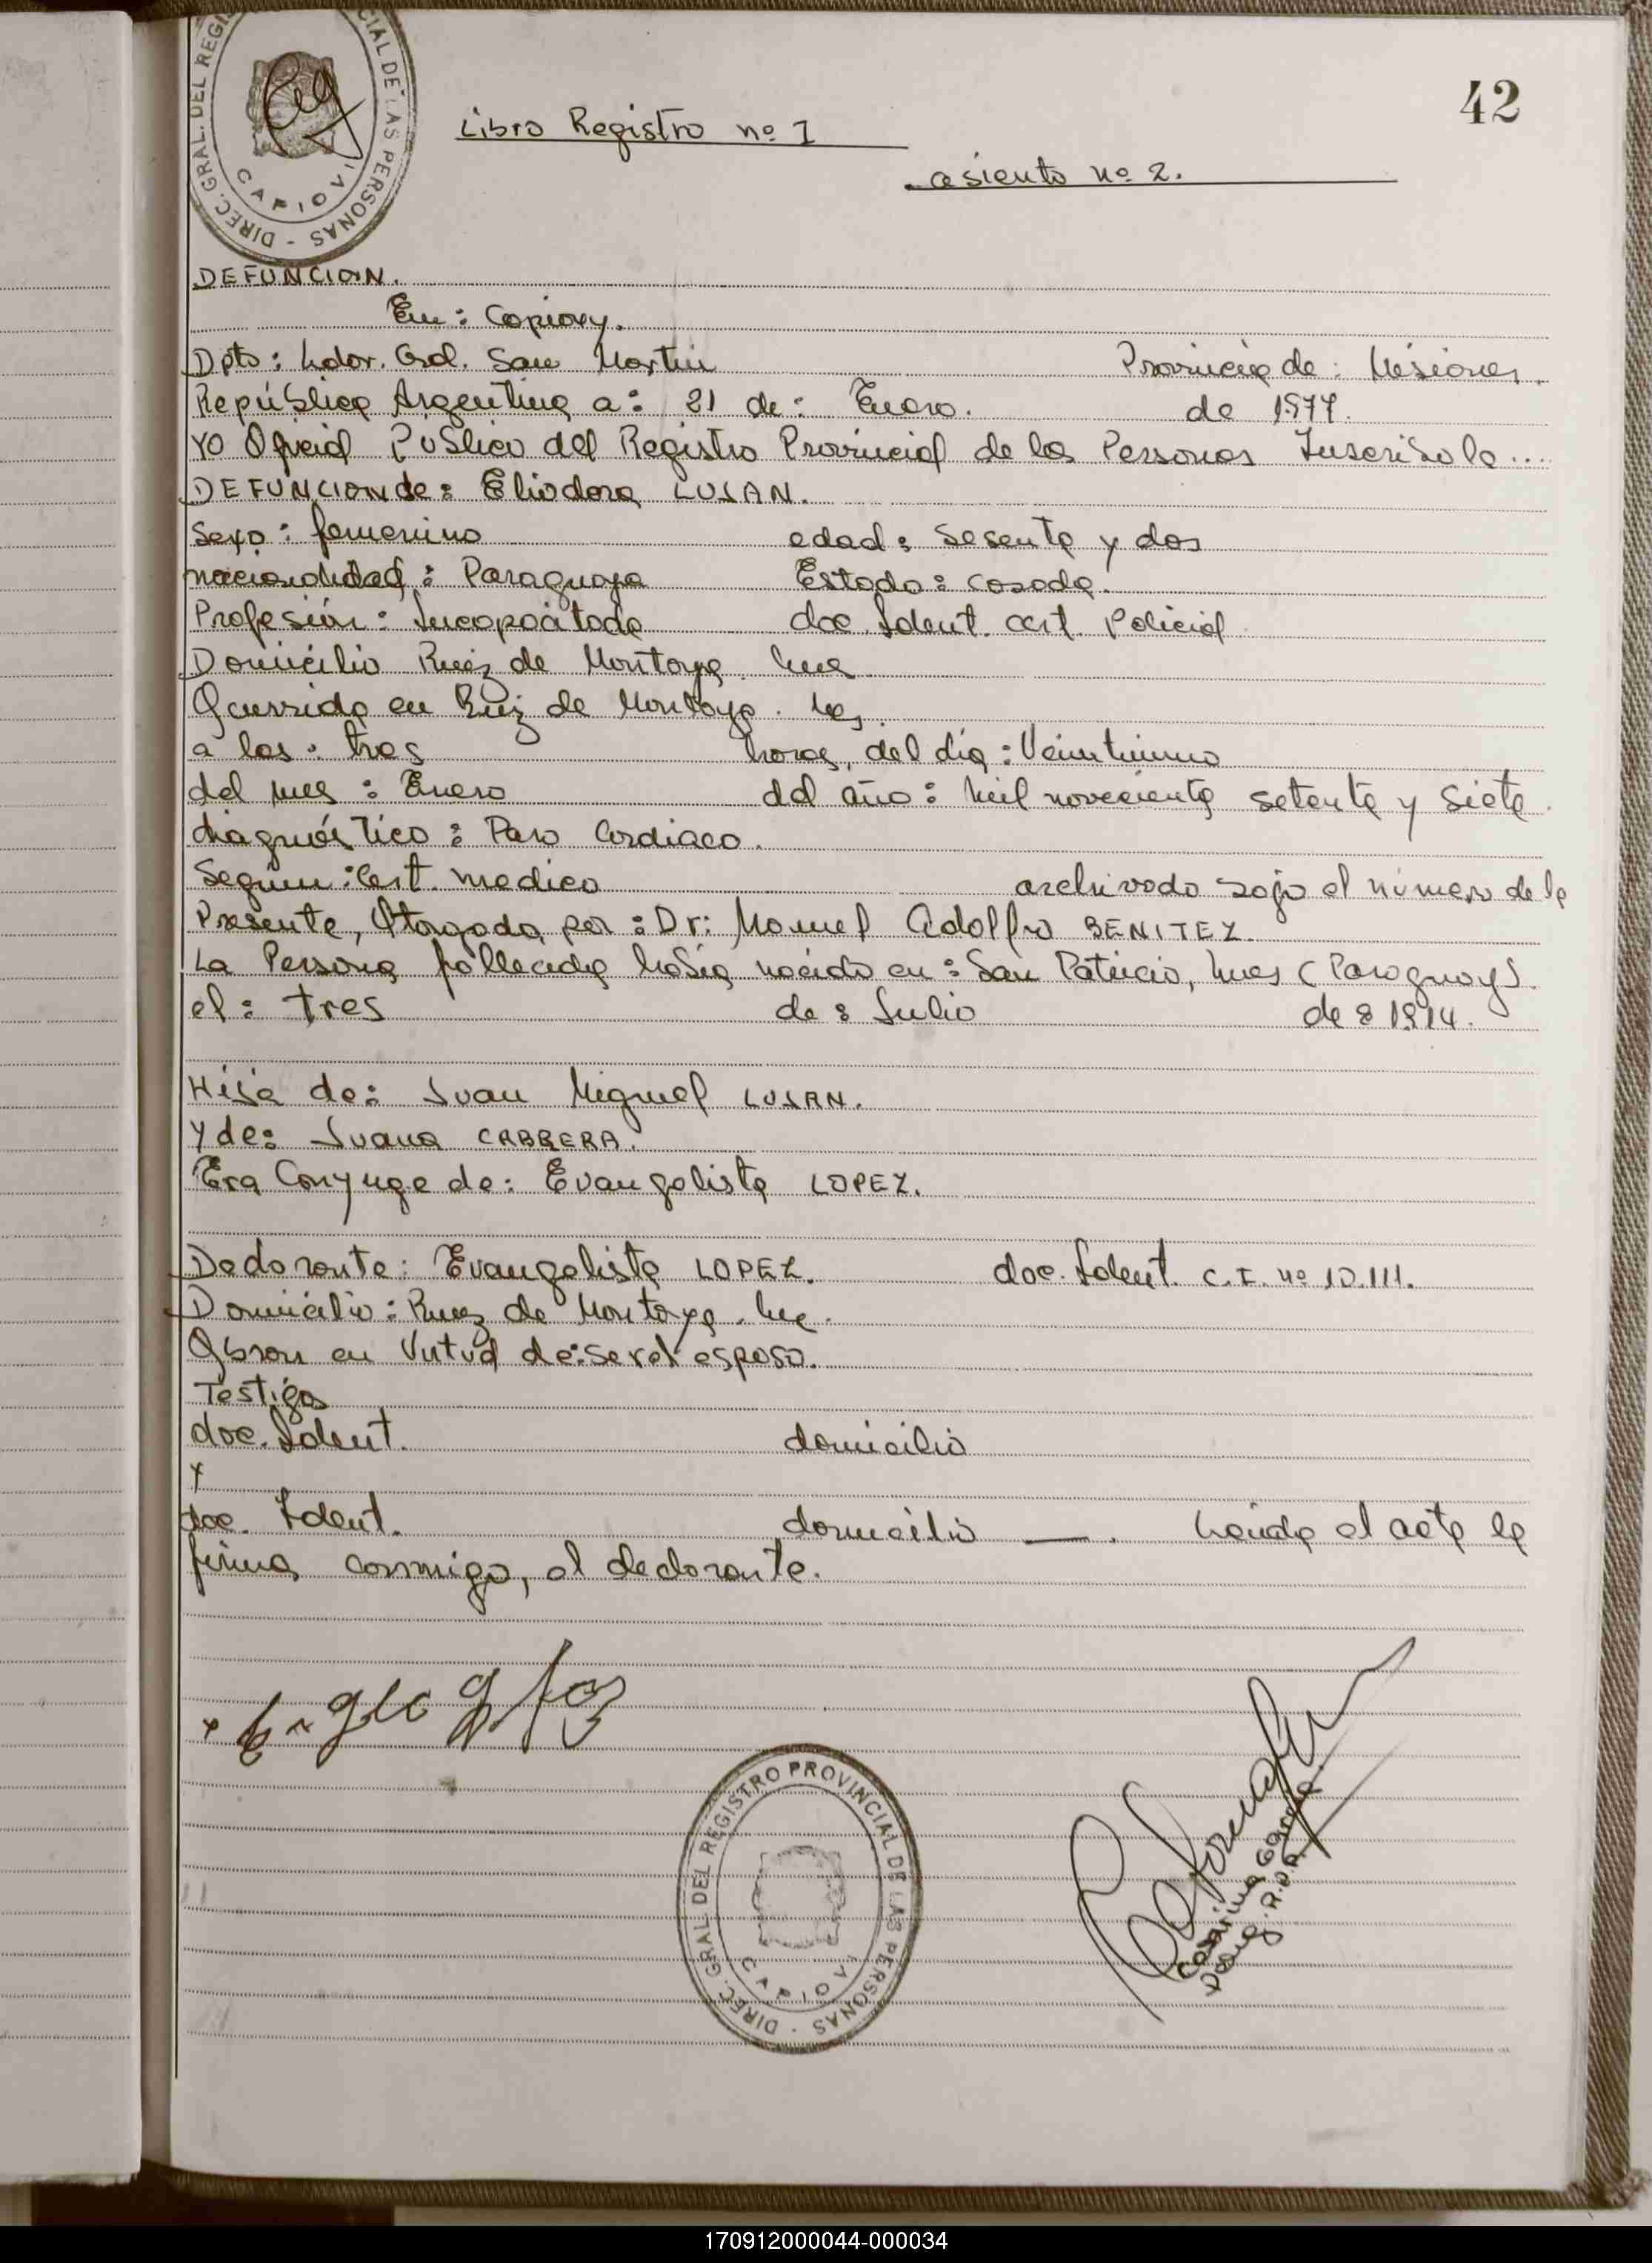 DIREC. GRAL. DEL REGI CIAL DE LAS PERSONAS
CAPIOVI
42
Libro Registro nº 1
asiento nº 2.
DEFUNCION.
En: Capiovy.
Dpto: Ldor. Gral. San Martin Provincia de: Misiones.
República Argentina a: 21 de: Enero. de 1977.
YO Oficial Publico del Registro Provincial de las Personas Inscribo la....
DEFUNCION de: Eliodora LUJAN.
Sexo: femenino edad: sesenta y dos
nacionalidad: Paraguaya Estado: casada.
Profesión: Incapacitada doc. Ident. cert. Policial
Domicilio Ruiz de Montoya. Mnes
Ocurrida en Ruiz de Montoya. Mnes.
a las: tres horas, del día: Veintiuno
del mes: Enero del año: mil novecienta setenta y siete.
diagnóstico: Paro Cardiaco.
Según: Cert. medico archivado bajo el número de la
Presente, Otorgada por: Dr: Manuel Adolfo BENITEZ.
La Persona fallecida había nacido en: San Patricio, Mnes (Paraguay).
el: tres de: Julio de: 1914.
Hija de: Juan Miguel LUJAN.
y de: Juana CABRERA.
Era Conyuge de: Evangelista LOPEZ.
Declarante: Evangelista LOPEZ. doc. Ident. C.I. nº 10.111.
Domicilio: Ruiz de Montoya. Mnes.
Obran en Virtud de: ser el esposo.
Testigos
doc. Ident. domicilio
y
doc. Ident. domicilio ——. Leída el acta la
firma conmigo, el declarante.
DIREC. GRAL. DEL REGISTRO PROVINCIAL DE LAS PERSONAS
CAPIOVI
170912000044-000034